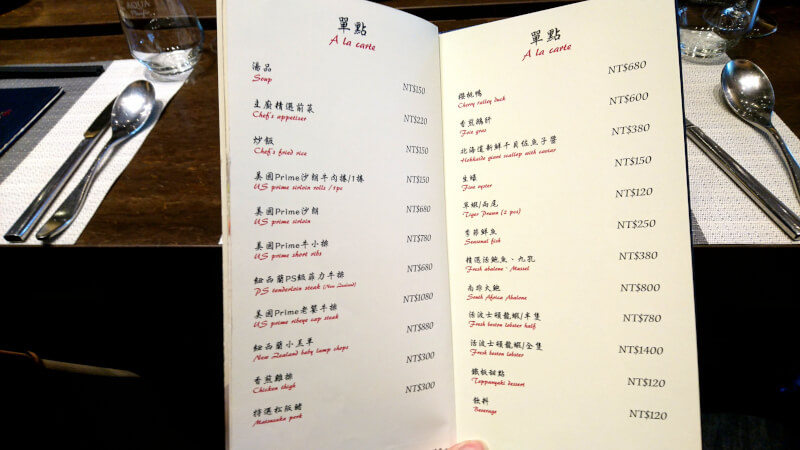 AQUA
單點
A la carte
湯品
Soup
NT$150
主廚精選前菜
Chef's appetizer
NT$220
炒飯
Chef's fried rice
NT$150
美國Prime沙朗牛肉捲/1捲
US prime sirloin rolls / 1pc
NT$150
美國Prime沙朗
US prime sirloin
NT$680
美國Prime牛小排
US prime short ribs
NT$780
紐西蘭PS級菲力牛排
PS tenderloin steak (New Zealand)
NT$680
美國Prime老饕牛排
US prime ribeye cap steak
NT$1080
紐西蘭小羔羊
New Zealand baby lamp shops
NT$880
香煎雞排
Chicken thigh
NT$300
特選松阪豬
Matsusaka pork
NT$300
單點
A la carte
櫻桃鴨
Cherry valley duck
NT$680
香煎鵝肝
Foie gras
NT$600
北海道新鮮干貝佐魚子醬
Hokkaido giant scallop with caviar
NT$380
生蠔
Fine oyster
NT$150
草蝦/兩尾
Tiger Prawn (2 pcs)
NT$120
當季鮮魚
Seasonal fish
NT$250
精選活鮑魚、九孔
Fresh abalone、Mussel
NT$380
南非大鮑
South Africa Abalone
NT$800
活波士頓龍蝦/半隻
Fresh boston lobster half
NT$780
活波士頓龍蝦/全隻
Fresh boston lobster
NT$1400
鐵板甜點
Teppanyaki dessert
NT$120
飲料
Beverage
NT$120